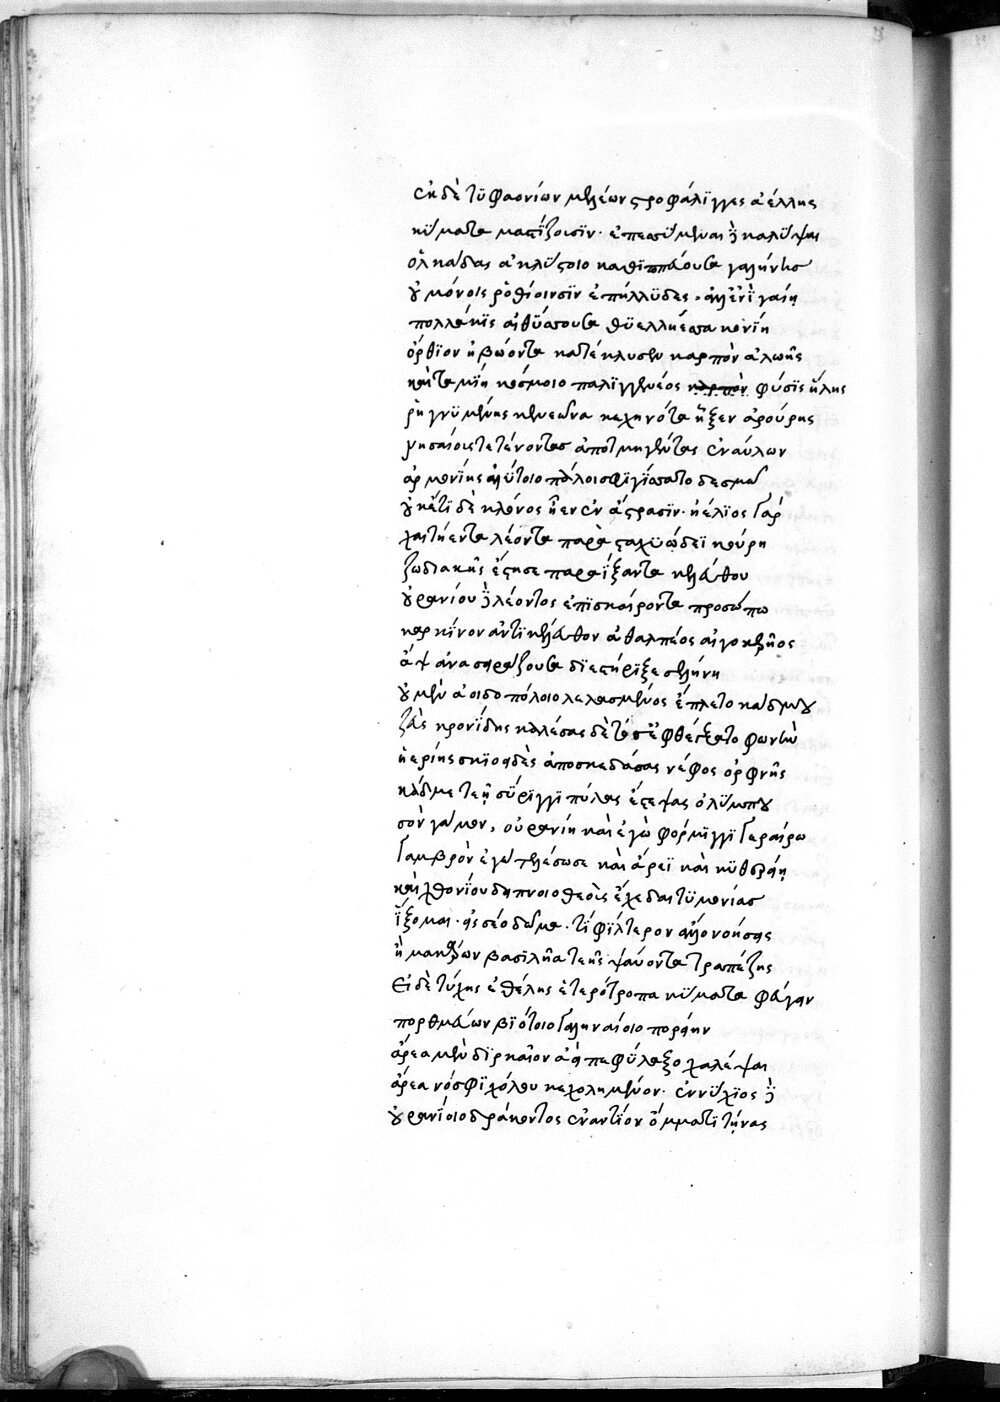 ἐκ δὲ τυφαονίων μελέων στροφάλιγγες ἀέλλης
κύματα μαστίζουσιν· ἐπεσσύμεναι καὶ καλύψαι
ὁλκάδας ἀκλύστοιο καθιππεύουσα γαλήνης
οὐ μόνοις ῥοθίοισιν ἐπήλυδες· ἀλλ' ἐνὶ γαίῃ
πολλάκις αἰθύσσουσα θύελλη ἔσσα κονίη
ὄρθιον ἡβώοντα κατέκλυσεν καρπὸν ἀλωῆς
καὶ ταμίη κόσμοιο παλιγγενέος φύσις ὕλης
ῥηγνυμένης κενεῶνα κεχηνότα πῆξεν ἀρούρης
νησαίους τε τένοντας ἀποτμηγέντας ἐναύλων
ἁρμονίης ἀλύτοιο πάλιν σφηγίσσατο δεσμῷ
οὐκέτι δὲ κλόνος ἦεν ἐν ἄστρασιν· ἠέλιος γὰρ
χαιτήεντα λέοντα παρὰ σταχυώδεϊ κούρῃ
ζωδιακῆς ἔστησε παραΐξαντα κελεύθου
οὐρανίου καὶ λέοντος ἐπισκαίροντα προσώπῳ
καρκίνον ἀντικέλευθον ἀθαλπέος αἰγοκερῆος
ἂψ ἀνασειράζουσα διεστήριξε σελήνη
οὐ μὲν ἀοιδοπόλοιο λελασμένος ἔπλετο κάδμου
ζεὺς κρονίδης καλέσας δὲ τόσ' ἐφθέγξατο φωνὴν
ἠερίης σκιοειδὲς ἀποσκεδάσας νέφος ὀρφνῆς
κάδμε τεῇ σύριγγι πύλας ἔστεψας ὀλύμπου
σὸν γάμον, οὐρανίη καὶ ἐγὼ φόρμιγγι γεραίρω
γαμβρὸν ἐγὼ τελέσω σε καὶ ἄρεϊ καὶ κυθερείῃ
καὶ χθονίου δείπνοιο θεοὺς ἔχε δαιτυμονίας
ἵξομαι· εἰς σέο δῶμα· τί φίλτερον ἄλλο νοήσεις
ἢ μακάρων βασιλῆα τεῆς ψαύοντα τραπέζης
Εἰ δὲ τύχης ἐθέλῃς ἑτερότροπα κύματα φεύγειν
πορθμεύων βιότοιο γαληναίοιο πορείην
ἄρεα μὲν διρκαῖον ἀεὶ πεφύλαξο χαλέψαι
ἄρεα νόσφι χόλου κεχολημένον· ἐννύχιος καὶ
οὐρανίοιο δράκοντος ἐναντίον ὄμματι τείνας